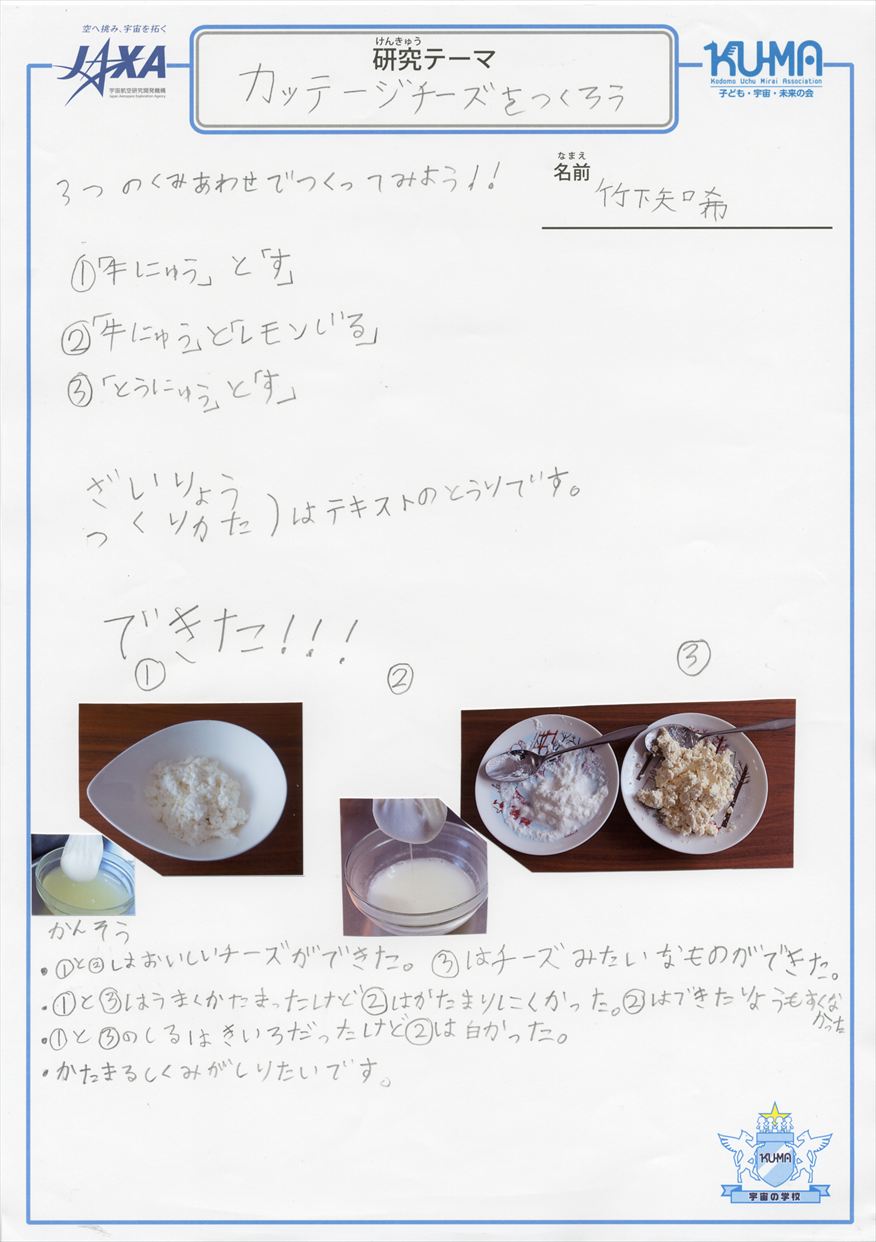 空へ挑み、宇宙を拓く
JAXA
宇宙航空研究開発機構
Japan Aerospace Exploration Agency
けんきゅう
研究テーマ
カッテージチーズをつくろう
KU-MA
Kodomo Uchu Mirai Association
子ども・宇宙・未来の会
なまえ
名前
竹下知希
3つのくみあわせでつくってみよう!!
①「牛にゅう」と「す」
②「牛にゅう」と「レモンじる」
③「とうにゅう」と「す」
ざいりょう
つくりかた)はテキストのとうりです。
できた!!!
① ② ③
かんそう
・①と②はおいしいチーズができた。③はチーズみたいなものができた。
・①と③はうまくかたまったけど②はかたまりにくかった。②はできたりょうもすくな
かった
・①と③のしるはきいろだったけど②は白かった。
・かたまるしくみがしりたいです。
KU-MA
宇宙の学校